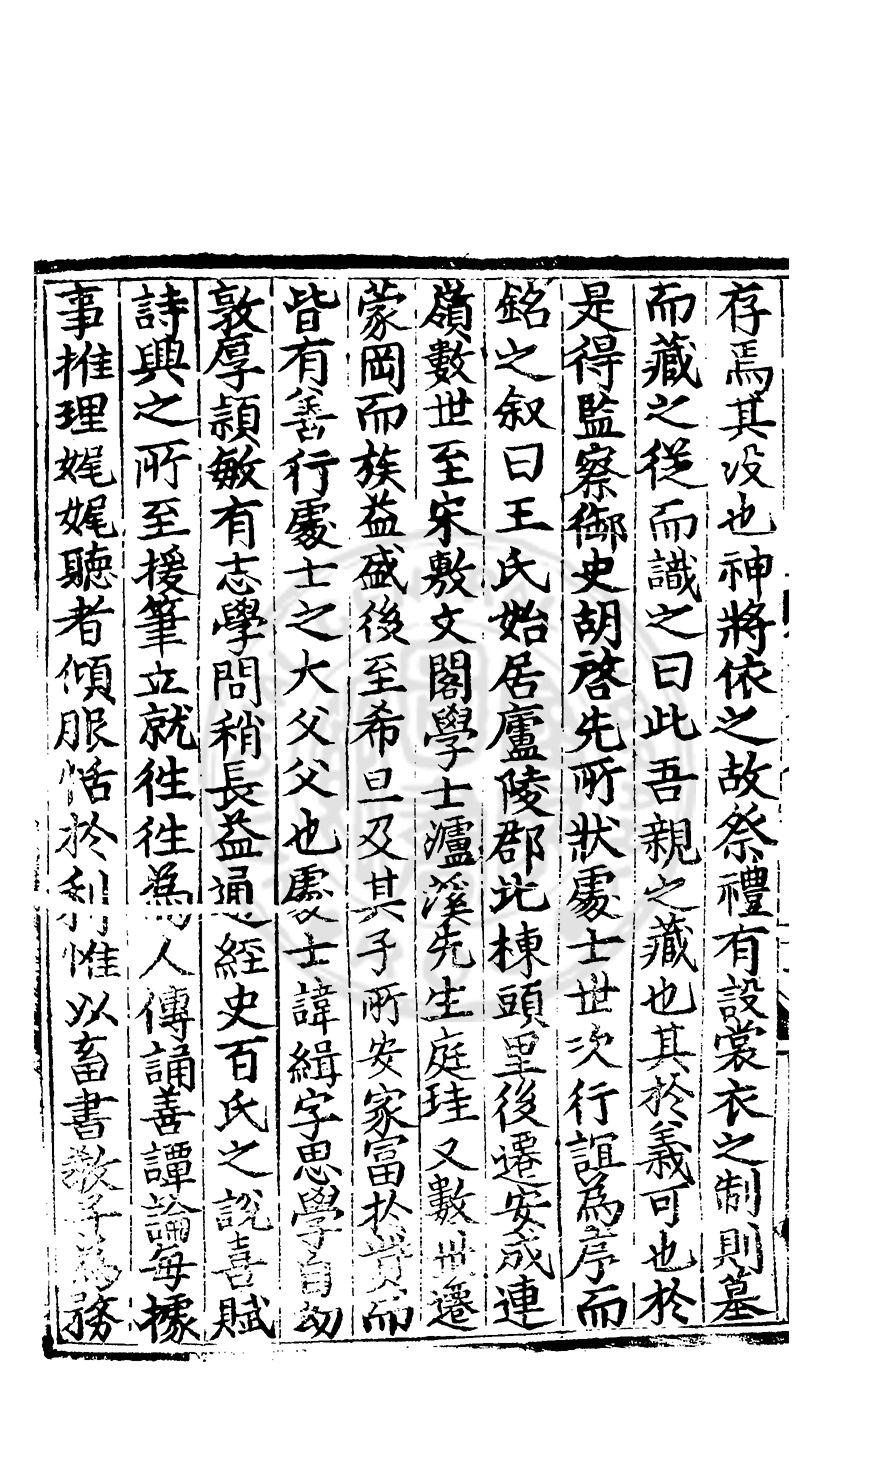 存焉其没也神將依之故祭禮有設裳衣之制則墓
而藏之從而識之曰此吾親之藏也其於義可也於
是得監察御史胡啓先所狀處士世次行誼為序而
銘之叙曰王氏始居廬陵郡北棟頭里後遷安成連
嶺數世至宋敷文閣學士瀘溪先生庭珪又數世遷
蒙岡而族益盛後至希旦及其子所安家富於貲而
皆有善行處士之大父父也處士諱緝字思學自幼
敦厚頴敏有志學問稍長益通經史百氏之說喜賦
詩興之所至援筆立就徃徃為人傳誦善譚論每據
事推理娓娓聽者傾服恬於利惟以畜書教子為務